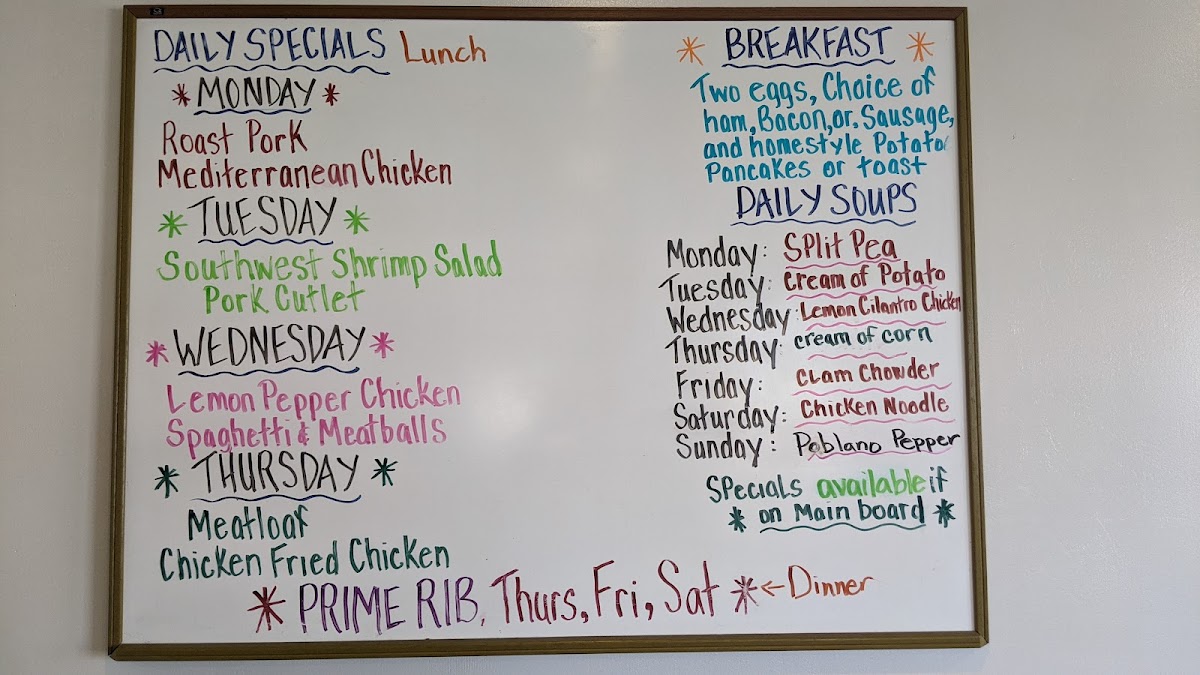 DAILY SPECIALS Lunch
MONDAY
Roast Pork
Mediterranean Chicken
TUESDAY
Southwest Shrimp Salad
Pork Cutlet
WEDNESDAY
Lemon Pepper Chicken
Spaghetti & Meatballs
THURSDAY
Meatloaf
Chicken Fried Chicken
PRIME RIB, Thurs, Fri, Sat ← Dinner
BREAKFAST
Two eggs, Choice of
ham, Bacon, or. Sausage,
and homestyle Potato
Pancakes or toast
DAILY SOUPS
Monday: Split Pea
Tuesday: Cream of Potato
Wednesday: Lemon Cilantro Chicken
Thursday: cream of corn
Friday: Clam Chowder
Saturday: Chicken Noodle
Sunday: Poblano Pepper
Specials available if
on Main board